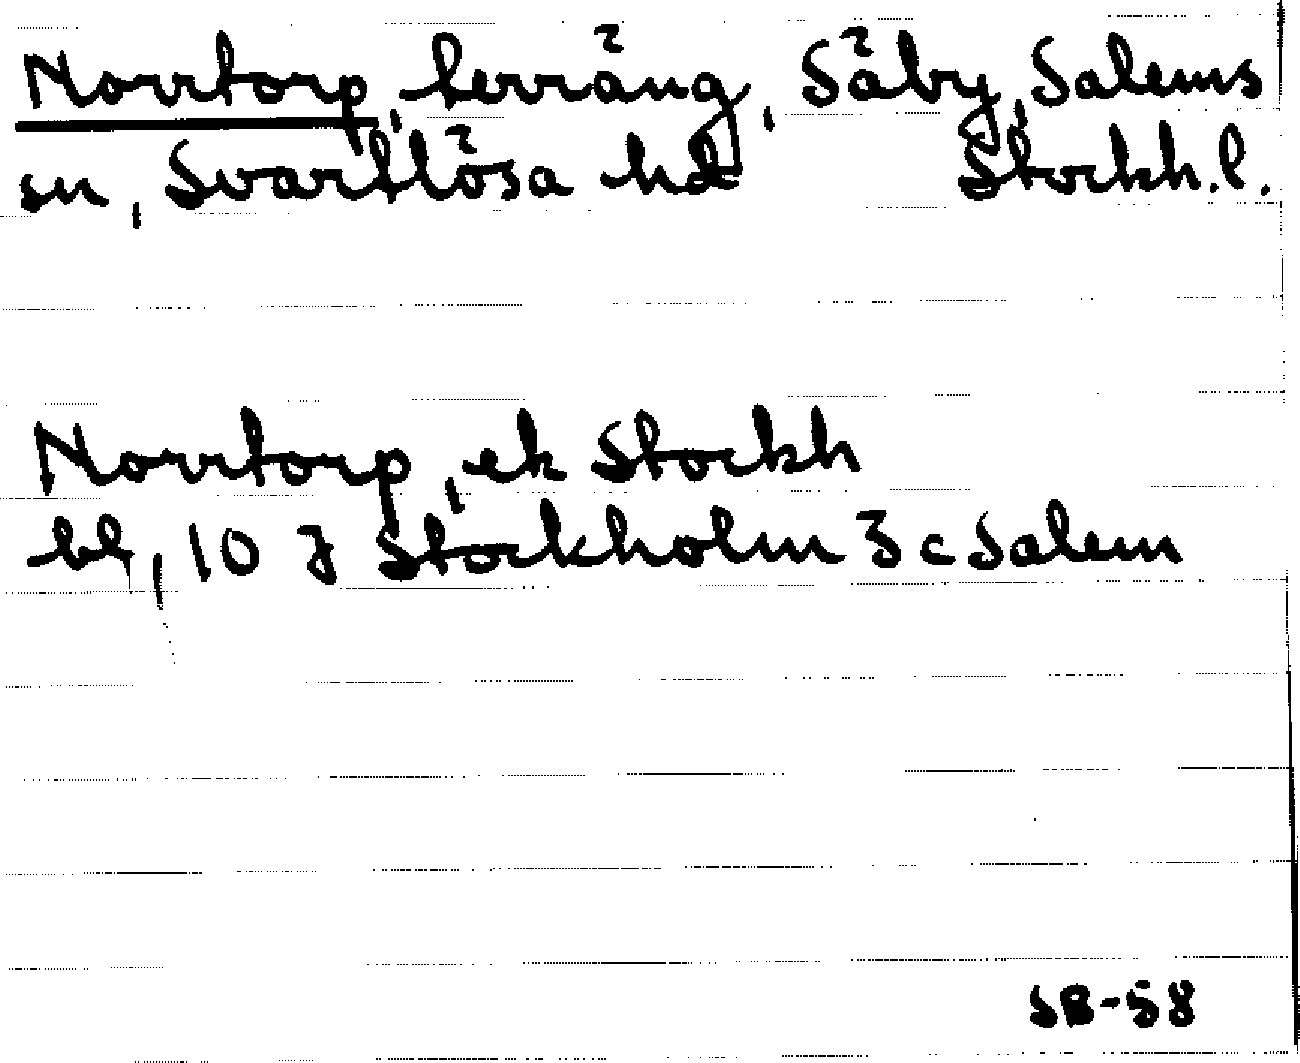 Norrtorp, terräng, Säby, Salems
sn, Svartlösa hd Stockh.l.
Norrtorp, ek Stockh
bl, 10 J Stockholm 3 c Salem
SB-58